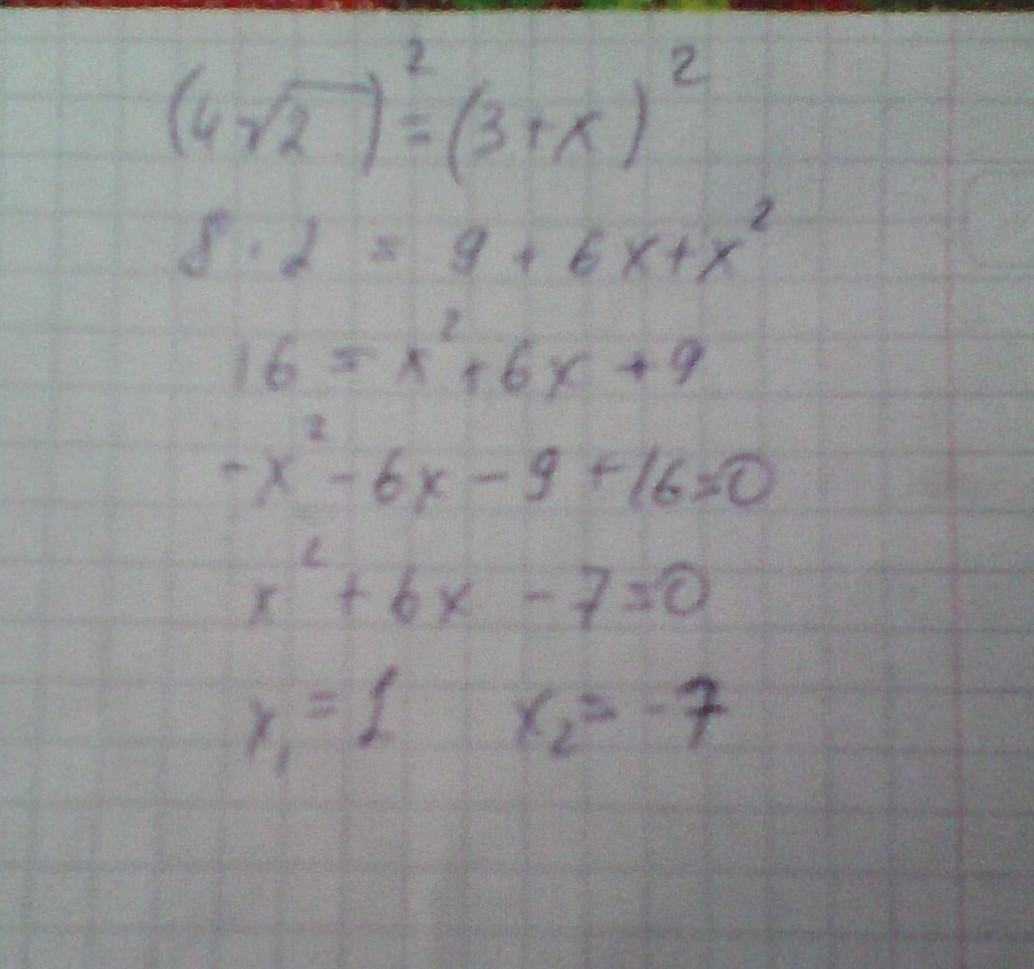 (4√2)² = (3+x)²
8 · 2 = 9 + 6x + x²
16 = x² + 6x + 9
-x² - 6x - 9 + 16 = 0
x² + 6x - 7 = 0
x₁ = 1 x₂ = -7